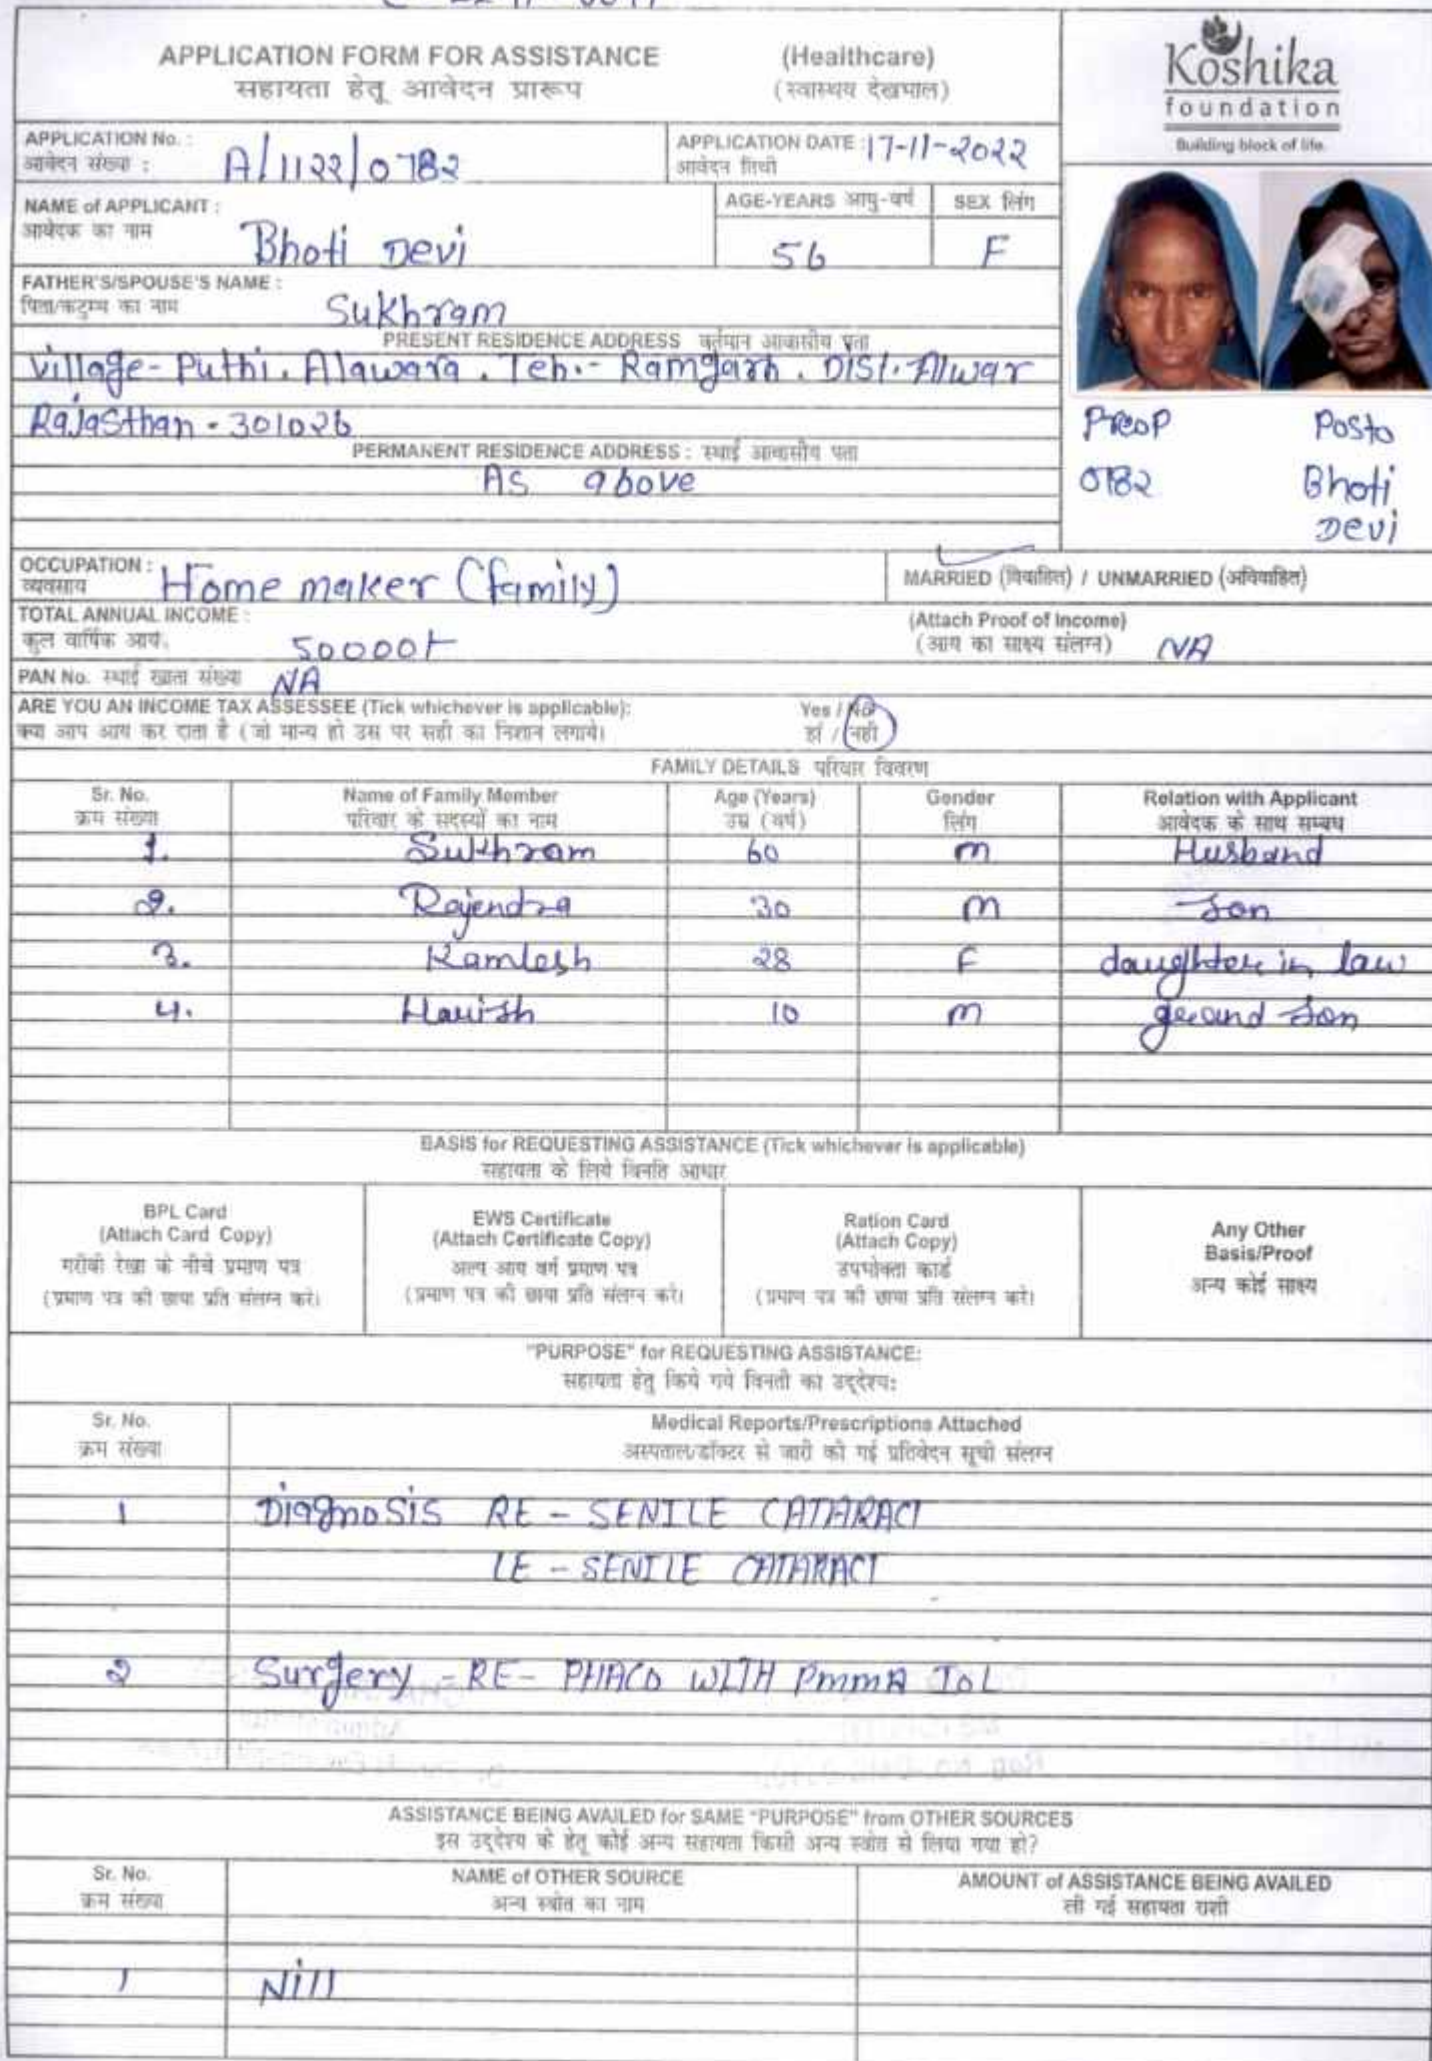 APPLICATION FORM FOR ASSISTANCE (Healthcare)
सहायता हेतू आवेदन प्रारूप (स्वास्थय देखभाल)
Koshika
foundation
Building block of life.
APPLICATION No. : A/1122/0782
आवेदन संख्या :
APPLICATION DATE : 17-11-2022
आवेदन तिथी
NAME of APPLICANT : Bhoti Devi
आवेदक का नाम
AGE-YEARS आयु-वर्ष 56
SEX लिंग F
FATHER'S/SPOUSE'S NAME : Sukhram
पिता/कटुम्ब का नाम
PRESENT RESIDENCE ADDRESS वर्तमान आवासीय पता
Village- Puthi. Alawara. Teh.- Ramgarh. Dist. Alwar
Rajasthan - 301026
PERMANENT RESIDENCE ADDRESS : स्थाई आवासीय पता
As above
Preop Posto
0782 Bhoti
Devi
OCCUPATION : Home maker (family)
व्यवसाय
MARRIED (विवाहित) / UNMARRIED (अविवाहित)
TOTAL ANNUAL INCOME : 50000/-
कुल वार्षिक आय.
(Attach Proof of Income)
(आय का साक्ष्य संलग्न) NA
PAN No. स्थाई खाता संख्या NA
ARE YOU AN INCOME TAX ASSESSEE (Tick whichever is applicable): Yes / No
क्या आप आय कर दाता है (जो मान्य हो उस पर सही का निशान लगाये। हां / नहीं
FAMILY DETAILS परिवार विवरण
Sr. No. Name of Family Member Age (Years) Gender Relation with Applicant
क्रम संख्या परिवार के सदस्यों का नाम उम्र (वर्ष) लिंग आवेदक के साथ सम्बध
1. Sukhram 60 m Husband
2. Rajendra 30 m Son
3. Kamlesh 28 F daughter in law
4. Harish 10 m grand son
BASIS for REQUESTING ASSISTANCE (Tick whichever is applicable)
सहायता के लिये विनति आधार
BPL Card
(Attach Card Copy)
गरीबी रेखा के नीचे प्रमाण पत्र
(प्रमाण पत्र की छाया प्रति संलग्न करे।
EWS Certificate
(Attach Certificate Copy)
अल्प आय वर्ग प्रमाण पत्र
(प्रमाण पत्र की छाया प्रति संलग्न करे।
Ration Card
(Attach Copy)
उपभोक्ता कार्ड
(प्रमाण पत्र की छाया प्रति संलग्न करे।
Any Other
Basis/Proof
अन्य कोई साक्ष्य
"PURPOSE" for REQUESTING ASSISTANCE:
सहायता हेतु किये गये विनती का उद्देश्य:
Sr. No. Medical Reports/Prescriptions Attached
क्रम संख्या अस्पताल/डॉक्टर से जारी की गई प्रतिवेदन सूची संलग्न
1 Diagnosis RE - SENILE CATARACT
LE - SENILE CATARACT
2 Surgery - RE - PHACO WITH PmmA IOL
ASSISTANCE BEING AVAILED for SAME "PURPOSE" from OTHER SOURCES
इस उद्देश्य के हेतू कोई अन्य सहायता किसी अन्य स्त्रोत से लिया गया हो?
Sr. No. NAME of OTHER SOURCE AMOUNT of ASSISTANCE BEING AVAILED
क्रम संख्या अन्य स्त्रोत का नाम ली गई सहायता राशी
1 Nill